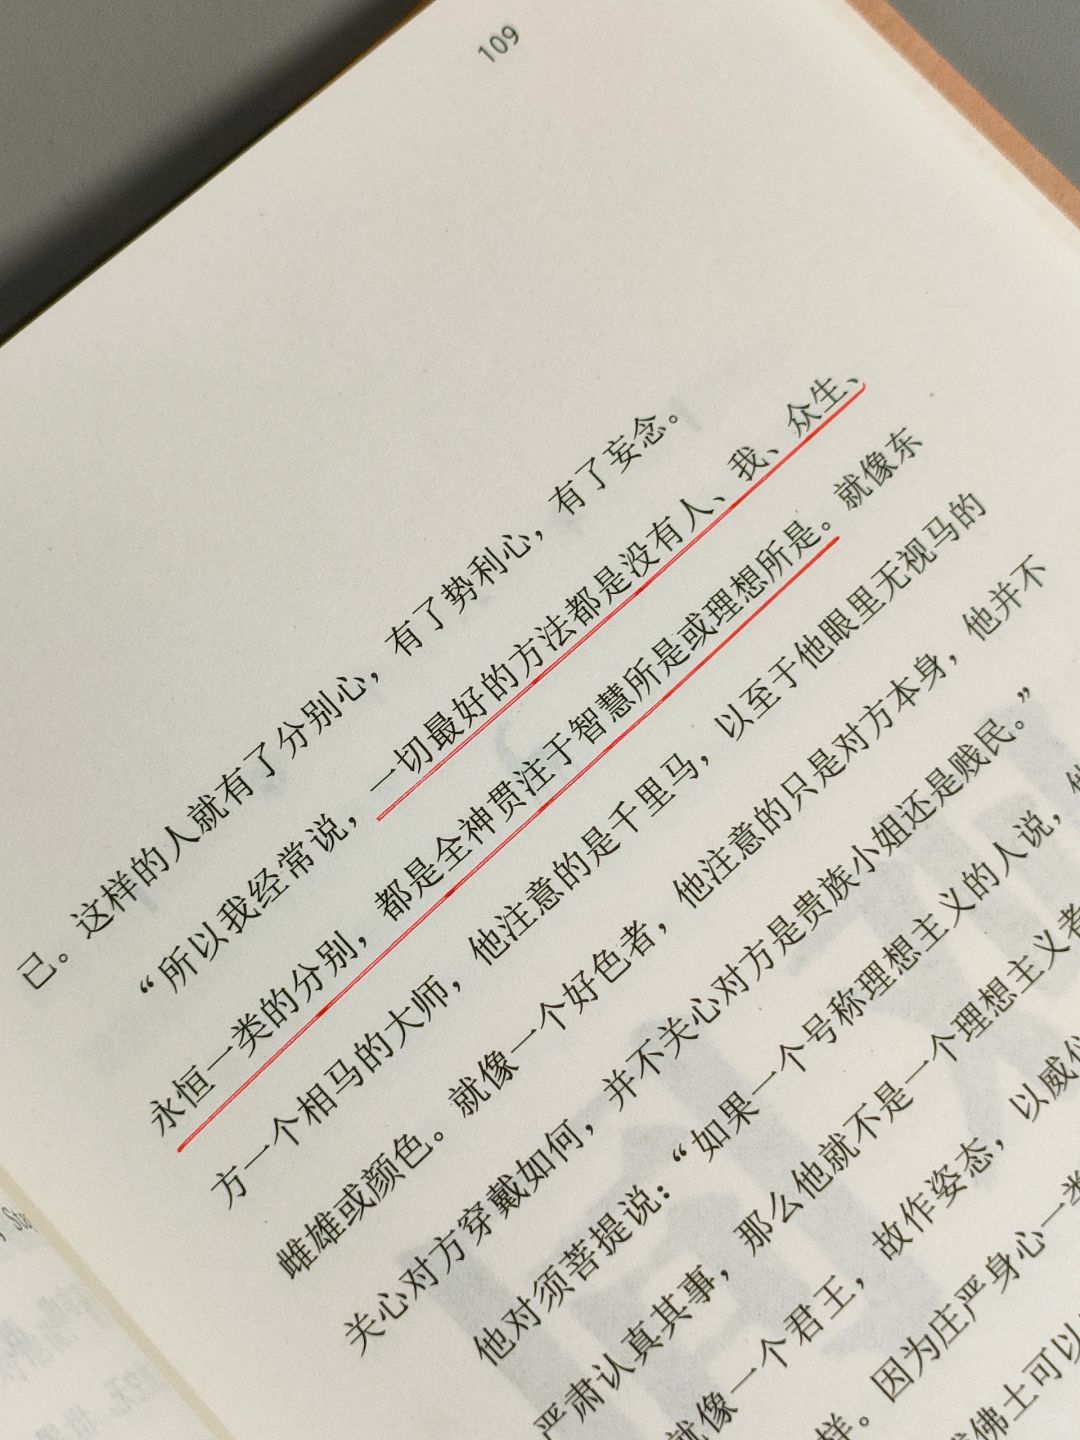 109
己。这样的人就有了分别心，有了势利心，有了妄念。
“所以我经常说，一切最好的方法都是没有人、我、众生、
永恒一类的分别，都是全神贯注于智慧所是或理想所是。就像东
方一个相马的大师，他注意的是千里马，以至于他眼里无视马的
雌雄或颜色。就像一个好色者，他注意的只是对方本身，他并不
关心对方穿戴如何，并不关心对方是贵族小姐还是贱民。”
他对须菩提说：“如果一个号称理想主义的人说，
严肃认真其事，那么他就不是一个理想主义者
就像一个君王，故作姿态，以威仪
样。因为庄严身心一类
佛土可以